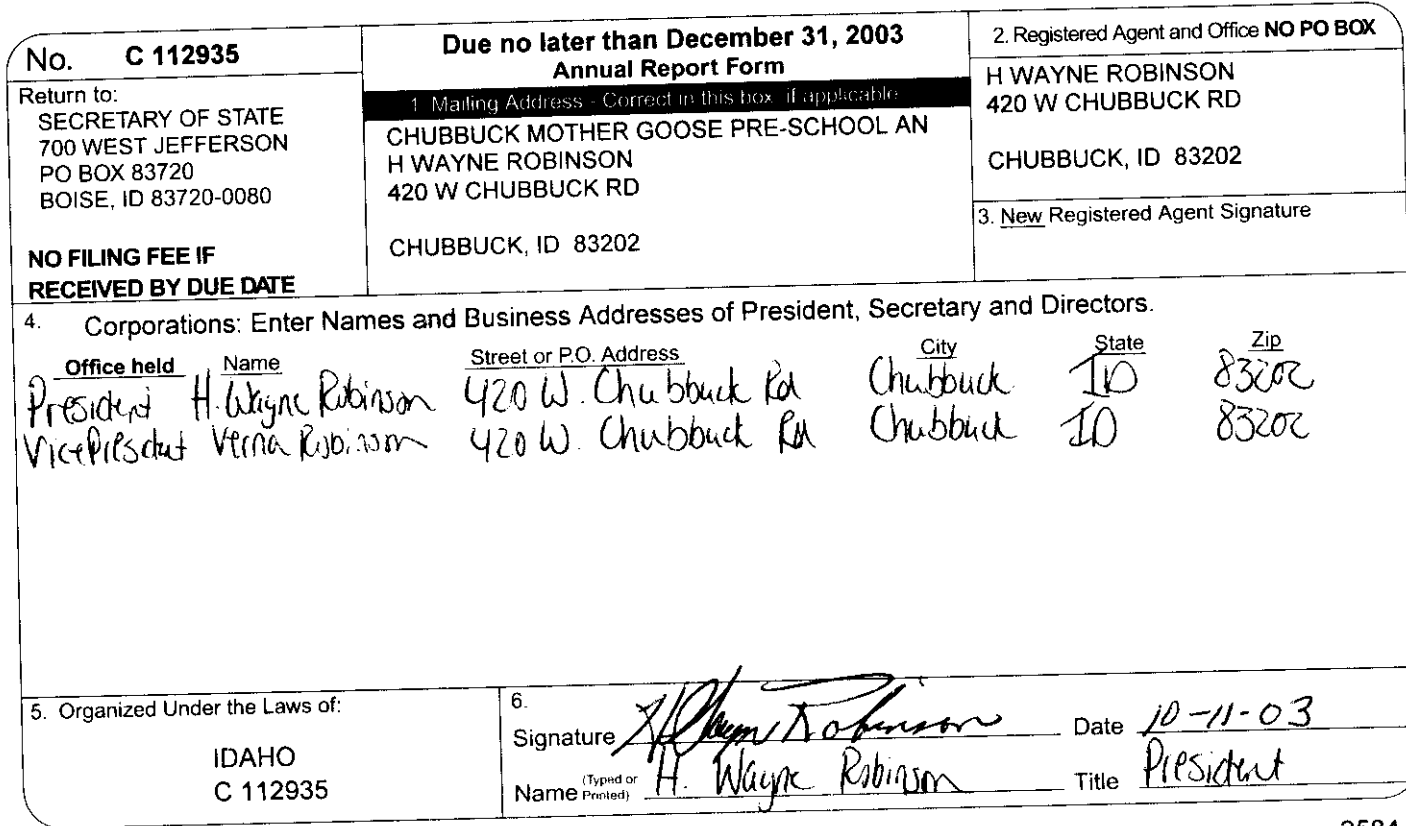 No. C 112935
Return to:
SECRETARY OF STATE
700 WEST JEFFERSON
PO BOX 83720
BOISE, ID 83720-0080
NO FILING FEE IF
RECEIVED BY DUE DATE
Due no later than December 31, 2003
Annual Report Form
1. Mailing Address - Correct in this box if applicable
CHUBBUCK MOTHER GOOSE PRE-SCHOOL AN
H WAYNE ROBINSON
420 W CHUBBUCK RD
CHUBBUCK, ID 83202
2. Registered Agent and Office NO PO BOX
H WAYNE ROBINSON
420 W CHUBBUCK RD
CHUBBUCK, ID 83202
3. New Registered Agent Signature
4. Corporations: Enter Names and Business Addresses of President, Secretary and Directors.
Office held Name Street or P.O. Address City State Zip
President H. Wayne Robinson 420 W. Chubbuck Rd Chubbuck ID 83202
Vice President Verna Robinson 420 W. Chubbuck Rd Chubbuck ID 83202
5. Organized Under the Laws of:
IDAHO
C 112935
6.
Signature H Wayne Robinson Date 10-11-03
Name (Typed or Printed) H. Wayne Robinson Title President